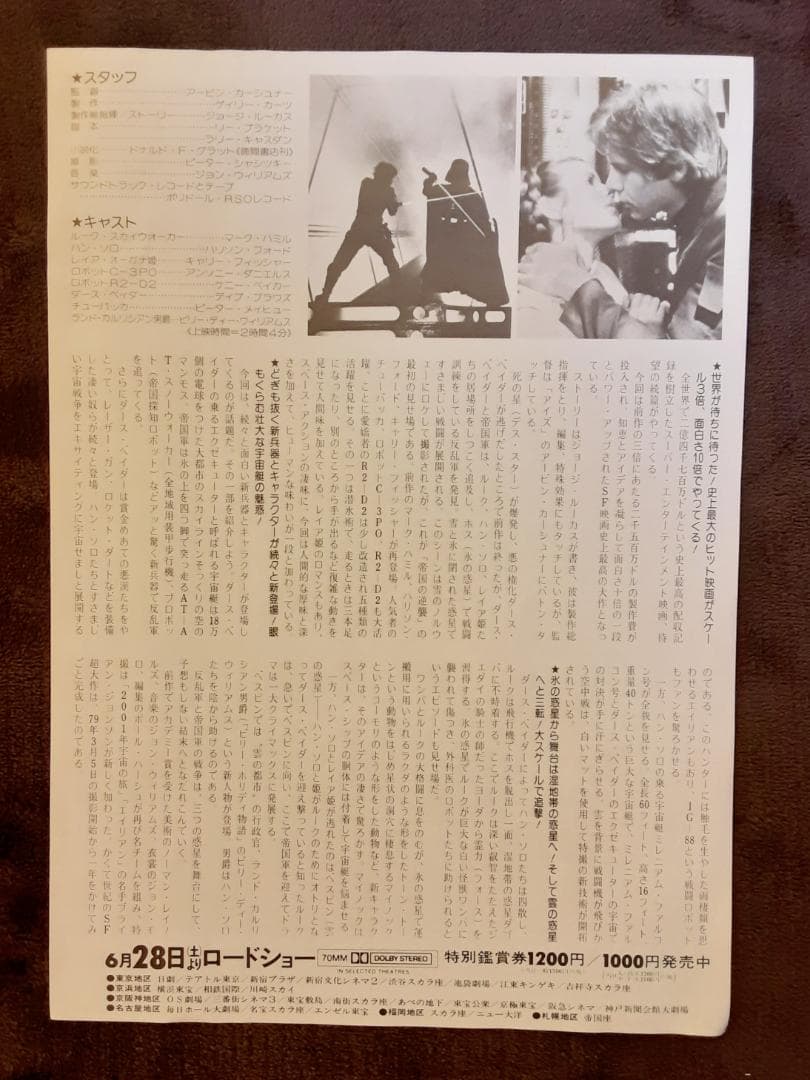 ★スタッフ
監督………アービン・カーシュナー
製作………ゲイリー・カーツ
製作総指揮 ストーリー……ジョージ・ルーカス
脚本………リー・ブラケット
ラリー・キャスダン
小説化……ドナルド・F・グラット《徳間書店刊》
撮影………ピーター・シャシツキー
音楽………ジョン・ウィリアムズ
サウンドトラック・レコードとテープ
ポリドール・RSOレコード
★キャスト
ルーク・スカイウォーカー………マーク・ハミル
ハン・ソロ………ハリソン・フォード
レイア・オーガナ姫………キャリー・フィッシャー
ロボットC-3PO………アンソニー・ダニエルス
ロボットR2-D2………ケニー・ベイカー
ダース・ベイダー………デイブ・プラウズ
チューバッカ………ピーター・メイヒュー
ランド・カルリシアン男爵…ビリー・ディー・ウィリアムス
《上映時間=2時間4分》
★世界が待ちに待つた!史上最大のヒット映画がスケー
ル3倍、面白さ10倍でやつてくる!
全世界で二億四千七百万ドルという史上最高の配収記
録を樹立したスーパー・エンターテインメント映画、待
望の続篇がやってくる。
今回は前作の三倍にあたる二千五百万ドルの製作費が
投入され、知恵とアイデアを凝らして面白さ十倍の一段
とパワー・アップされたSF映画史上最高の大作となっ
ている。
ストーリーはジョージ・ルーカスが書き、彼は製作総
指揮をとり、編集、特殊効果にもタッチしているが、監
督は「アイズ」のアービン・カーシュナーにバトン・タ
ッチしている。
死の星(デス・スター)が爆発し、悪の権化ダース・
ベイダーが逃げだしたところで前作は終ったが、ダース・
ベイダーと帝国軍は、ルーク、ハン・ソロ、レイア姫た
ちの居場所をしつこく追及し、ホス(氷の惑星)で戦闘
訓練をしている反乱軍を発見、雪と氷に閉された惑星で
すさまじい戦闘が展開される。このシーンは雪のノルウ
ェーにロケして撮影されたが、これが「帝国の逆襲」の
最初の見せ場である。前作のマーク・ハミル、ハリソン・
フォード、キャリー・フィッシャーが再登場、人気者の
チューバッカ、ロボットC-3PO、R2-D2も大活
躍、ことに愛嬌者のR2-D2は少し改造され五種類の
活躍を見せる。その一つは潜水術で、走るときは三本足
になったり、別のところから手が出るなど複雑な動きを
見せて人間味を加えている。レイア姫のロマンスもあり、
スペース・アクションの凄味に、今回は人間的な厚味と深
さを加えて、ヒューマンな味わいが一段と加わっている。
★どぎも抜く新兵器とキャラクターが続々と新登場!眼
もくらむ壮大な宇宙艇の魅惑!
今回は、続々と面白い新兵器とキャラクターが登場し
てくるのが話題だ。その一部を紹介しよう。ダース・ベ
イダーの乗るエクゼキューターと呼ばれる宇宙艇は18万
個の電球をつけた大都市のスカイラインそっくりの空の
マンモス。帝国軍は氷の上を四つ脚で突っ走るAT-A
T・スノーウォーカー(全地域用装甲歩行機)、プロボッ
ト(帝国探知ロボット)などアッと驚く新兵器で反乱軍
を追ってくる。
さらにダース・ベイダーは賞金めあての悪漢たちをや
とって、レーザー・ガン、ロケット・ダートなどを装備
した凄い奴らが続々と登場、ハン・ソロたちとすさまじ
い宇宙戦争をエキサイティングに宇宙せましと展開する
のである。このハンターには触毛を生やした両棲類を思
わせるエイリアンもおり、IG-88という戦闘ロボット
もファンを驚ろかせる。
一方、ハン・ソロの乗る宇宙艇ミレニアム・ファルコ
ン号が全貌を見せる。全長60フィート、高さ16フィート、
重量40トンという巨大な宇宙艇で、ミレニアム・ファル
コン号とダース・ベイダーのエクゼキューターの宇宙で
の対決が手に汗にぎらせる。雲を背景に戦闘機が飛びか
う空中戦は、白いマットを使用して特撮の新技術が開拓
されている。
★氷の惑星から舞台は湿地帯の惑星へ!そして雲の惑星
へと三転!大スケールで追撃!
ダース・ベイダーによってハン・ソロたちは四散し、
ルークは飛行機でホスを脱出し一面、湿地帯の惑星ダイ
バに不時着する。ここでルークは深い叡智をたたえたジ
エダイの騎士の師だったヨーダから霊力(フォース)を
習得する。氷の惑星でルークが巨大な白い怪獣ワンパに
襲われて傷つき、外科医のロボットたちに助けられると
いうエピソードも見せ場だ。
ワンパとルークの大格闘に息をのむが、氷の惑星で運
搬用に用いられるラクダのような形をしたトーン・トー
ンという動物をはじめ星状の洞穴に棲息するマイノック
というコーモリのような形をした動物など、新キャラク
ターは、そのアイデアの凄さで驚ろかす。マイノックは
スペース・シップの胴体には付着して宇宙艇を悩ませる。
一方、ハン・ソロとレイア姫が逃れたのはベスピン(雲
の惑星)――ハン・ソロと姫がルークのためにオトリとな
ってダース・ベイダーを迎え撃っていると知ったルーク
は、急いでベスピンに向い、ここで帝国軍を迎えてドラ
マは一大クライマックスに発展する。
ベスピンでは、〈雲の都市〉の行政官、ランド・カルリ
シアン男爵(「ビリー・ホリデイ物語」のビリー・ディー・
ウィリアムス)という新人物が登場、男爵はハン・ソロ
たちを陰から助けるのである。
反乱軍と帝国軍の戦争は、三つの惑星を舞台にして、
予想もしない結末へとなだれこんでいく。
前作でアカデミー賞を受けた美術のノーマン・レイノ
ルズ、音楽のジョン・ウィリアムズ、衣裳のジョン・モ
ロ、編集のポール・ハーシュが再び名チームを組み、特
撮は、「2001年宇宙の旅」「エイリアン」の名手ブライ
アン・ジョンソンが新しく加わった。かくて世紀のSF
超大作は、79年3月5日の撮影開始から一年をかけてみ
ごと完成したのである。
6月28日(土)よりロードショー 70MM DOLBY STEREO 特別鑑賞券1200円/1000円発売中
IN SELECTED THEATRES
●東京地区 日劇/テアトル東京/新宿プラザ/新宿文化シネマ2/渋谷スカラ座/池袋劇場/江東キンゲキ/吉祥寺スカラ座
●京浜地区 横浜東宝/相鉄国際/川崎スカイ
●京阪神地区 OS劇場/三番街シネマ3/東宝敷島/南街スカラ座/あべの地下/東宝公楽/京極東宝/阪急シネマ/神戸新聞会館大劇場
●名古屋地区 毎日ホール大劇場/名宝スカラ座/エンゼル東宝 ●福岡地区 スカラ座/ニュー大洋 ●札幌地区 帝国座